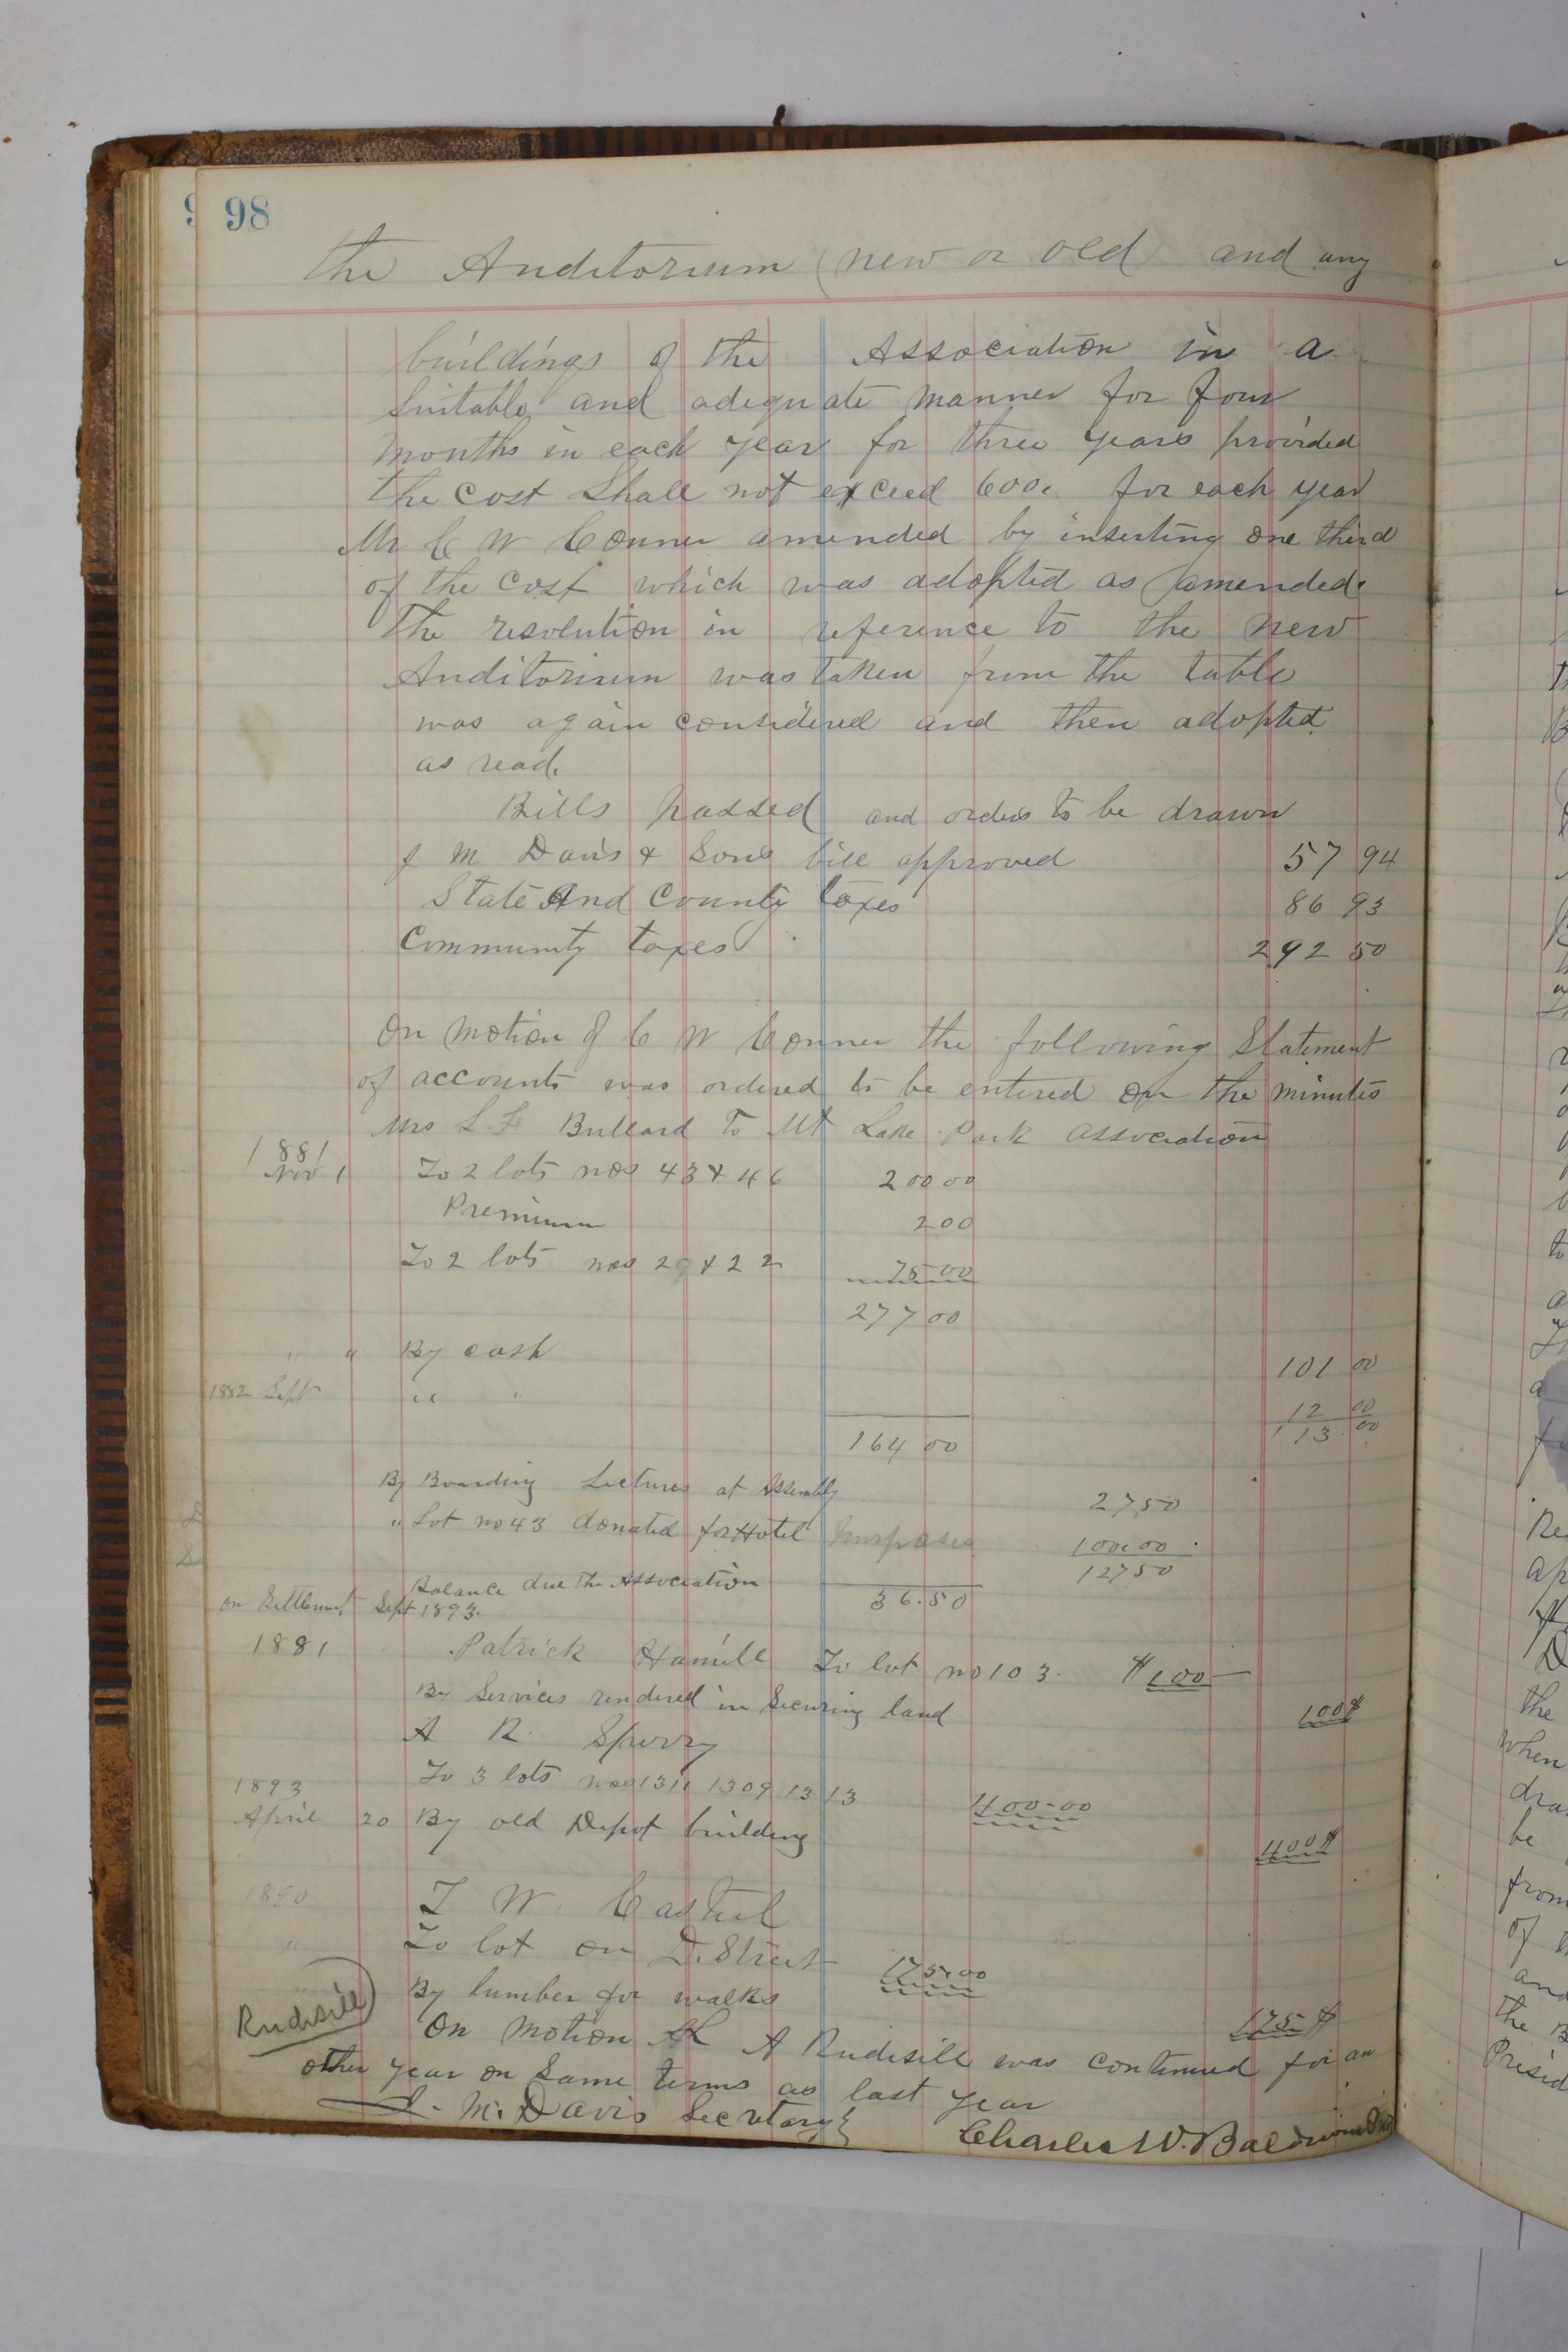 98
the Auditorium (new or old) and any
buildings of the Association in a
suitable and adequate manner for four
months in each year for three years provided
the cost shall not exceed 600. for each year
Mr C W Conner amended by inserting one third
of the cost which was adopted as amended.
The resolution in reference to the new
Auditorium was taken from the table
was again considered and then adopted
as read.
Bills passed and orders to be drawn
J M Davis & Sons bill approved 57 94
State And County taxes 86 93
Community taxes 292 50
On motion of C W Conner the following Statement
of accounts was ordered to be entered on the minutes
Mrs L F Bullard To Mt Lake Park Association
1881
Nov 1 To 2 lots nos 43 & 46 200 00
Premium 2 00
To 2 lots nos 20 & 22 75 00
277 00
" " By cash 101 00
1882 Sept " " 12 00
164 00 113 00
By Boarding Lectures at Assembly 27,50
" Lot no 43 donated for Hotel Purposes 100.00
127 50
Balance due the Association 36.50
on Settlement Sept 1893.
1881 Patrick Hamill To lot no 103. $100—
By Services rendered in Securing land 100$
A R. Sperry
To 3 lots nos 1311 1309 1313 400-00
1893
April 20 By old Depot building 400$
1890 T W Casteel
" To lot on D. Street 175.00
By lumber for walks 175 $
Rudisill
On motion A A Rudisill was continued for an
other year on Same terms as last year
J. M. Davis Secretary Charles W. Baldwin